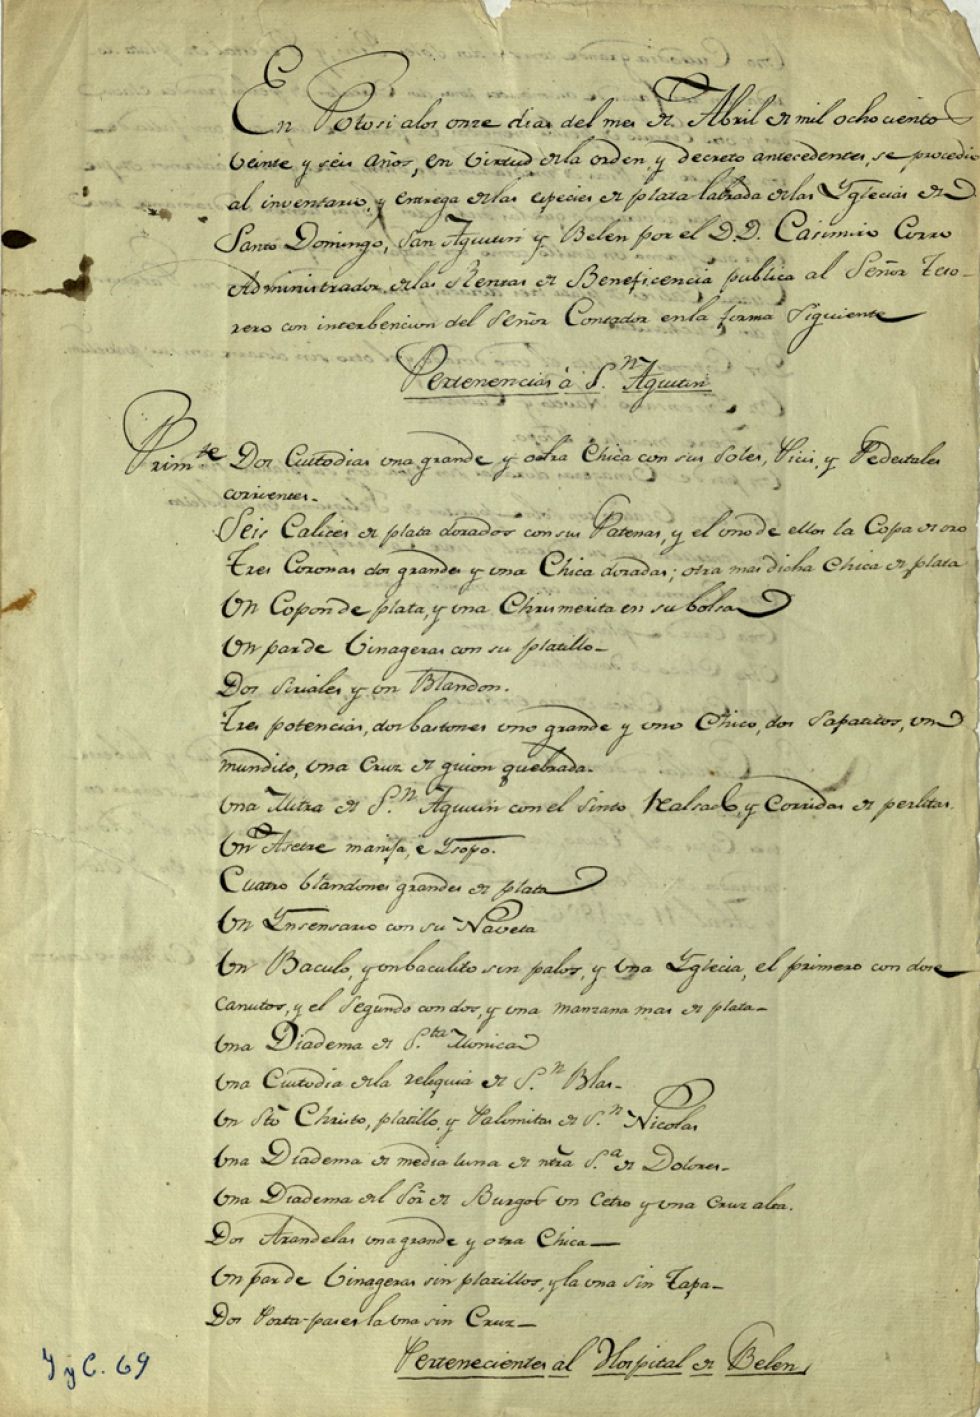 En Potosi alos onze dias del mes de Abril de mil ochociento
veinte y seis años, en virtud dela orden y decreto antecedentes, se procedio
al inventario, y entrega delas especies de plata labrada delas Yglecias de
Santo Domingo, San Agustin y Belen por el D.D. Casimiro Corro
Administrador delas Rentas de Beneficencia publica al Señor Teso-
rero con interbencion del Señor Contador enla forma Siguiente
Pertenencias à S.n Agustin
Prim.te Dos Custodias una grande y otra Chica con sus Soles, Vicis, y Pedestales
corrientes.
Seis Calices de plata dorados con sus Patenas, y el uno de ellos la Copa de oro
Tres Coronas dos grandes y una Chica doradas; otra mas dicha Chica de plata
Un Copon de plata, y una Chrismerita en su bolsa
Un par de Vinageras con su platillo
Dos Siriales y un Blandon.
Tres potencias, dos bastones uno grande y uno Chico, dos Sapatitos, un
mundito, una Cruz de guion quebrada.
Una Mitra de S.n Agustin con el Sinto Kalsado, y Corridas de perlitas.
Un Asetre manija, è Ysopo.
Cuatro blandones grandes de plata
Un Ynsensario con su Naveta
Un Baculo, y un baculito sin palos, y una Yglecia, el primero con dose
canutos, y el Segundo con dos, y una manzana mas de plata
Una Diadema de S.ta Monica
Una Custodia dela reliquia de S.n Blas.
Un Sto Christo, platillo, y Palomitas de S.n Nicolas
Una Diadema de media luna de ntra S.a de Dolores
Una Diadema del Sor de Burgos un Cetro y una Cruz alta.
Dos Arandelas una grande y otra Chica
Un par de Vinageras sin platillos, y la una sin Tapa
Dos Porta-pases la una sin Cruz
Pertenecientes al Hospital de Belen
Y y C. 69